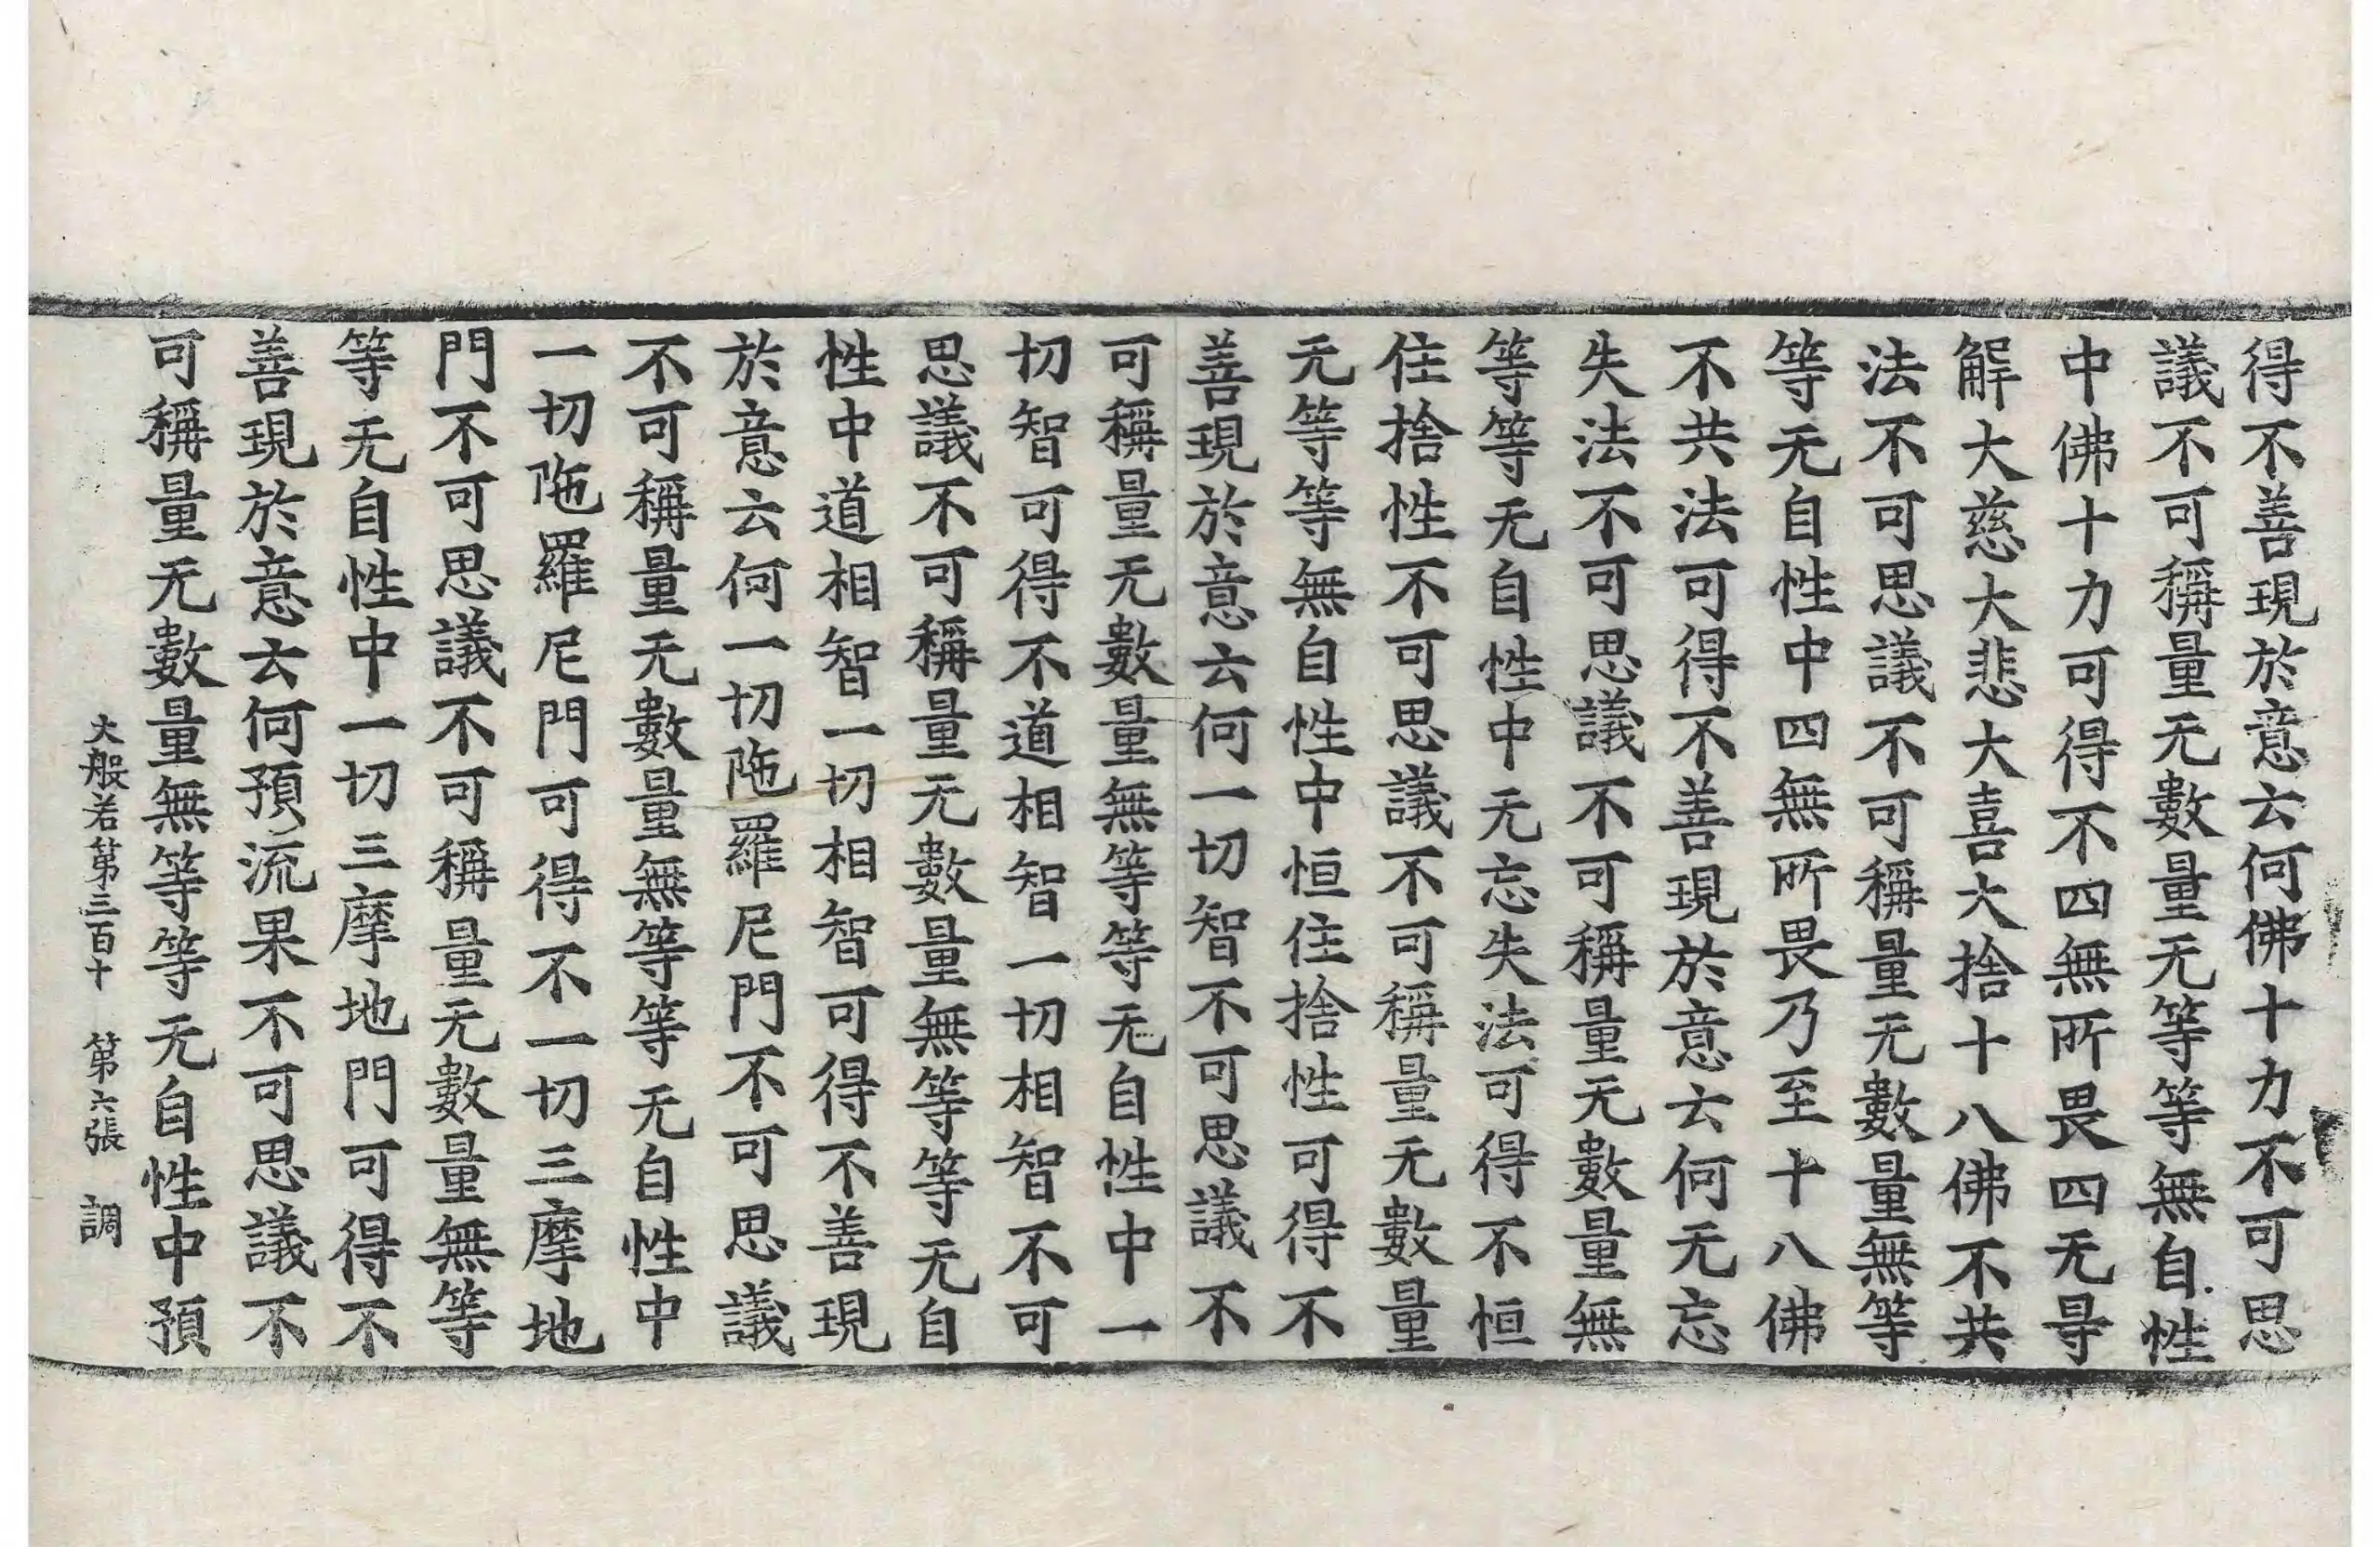 得不善現於意云何佛十力不可思
議不可稱量无數量无等等無自性
中佛十力可得不四無所畏四无㝵
解大慈大悲大喜大捨十八佛不共
法不可思議不可稱量无數量無等
等无自性中四無所畏乃至十八佛
不共法可得不善現於意云何无忘
失法不可思議不可稱量无數量無
等等无自性中无忘失法可得不恒
住捨性不可思議不可稱量无數量
无等等無自性中恒住捨性可得不
善現於意云何一切智不可思議不
可稱量无數量無等等无自性中一
切智可得不道相智一切相智不可
思議不可稱量无數量無等等无自
性中道相智一切相智可得不善現
於意云何一切陁羅尼門不可思議
不可稱量无數量無等等无自性中
一切陁羅尼門可得不一切三摩地
門不可思議不可稱量无數量無等
等无自性中一切三摩地門可得不
善現於意云何預流果不可思議不
可稱量无數量無等等无自性中預
大般若第三百十　第六張　調